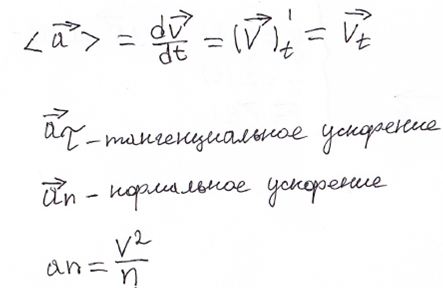 <a⃗> = dv⃗/dt = (V⃗)'ₜ = V⃗ₜ
a⃗τ – тангенциальное ускорение
a⃗n – нормальное ускорение
an = V²/η